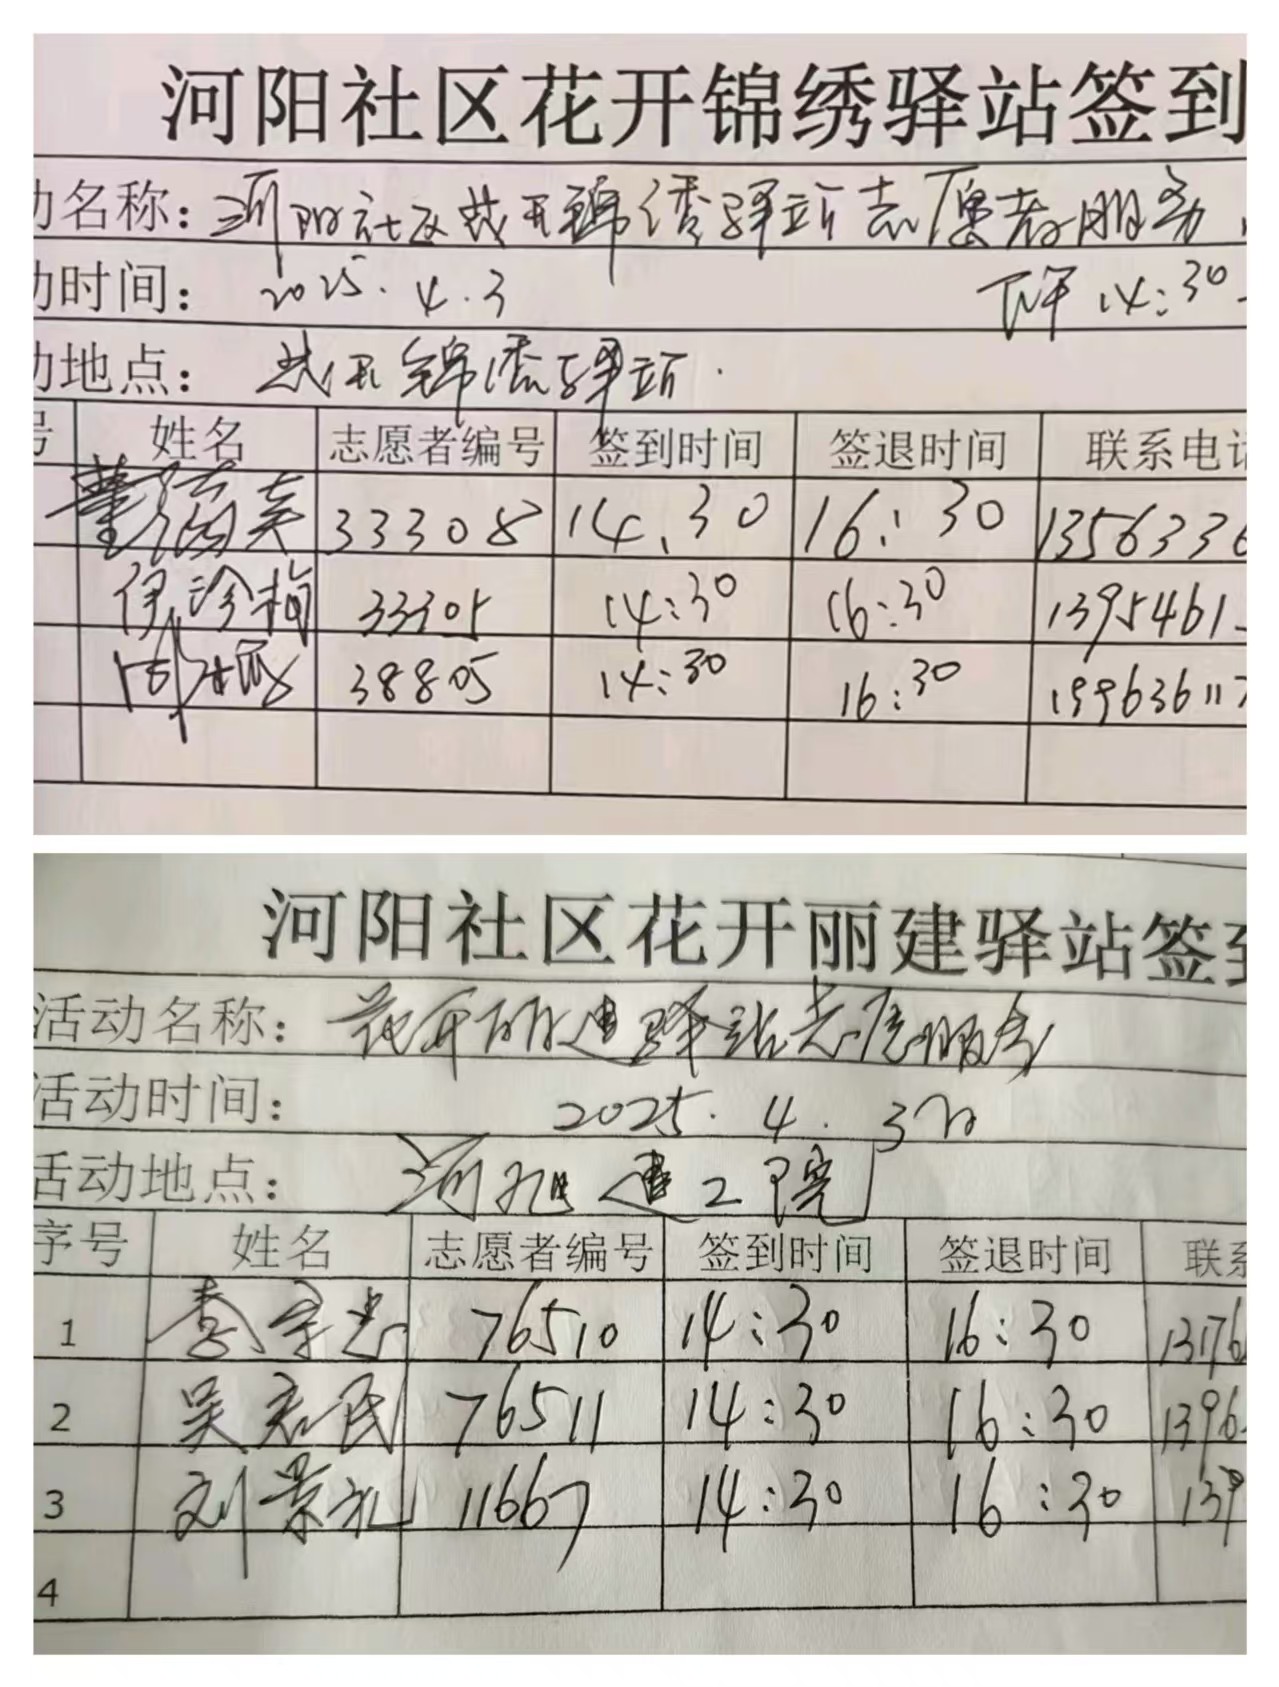 河阳社区花开锦绣驿站签到
动名称：河阳社区花开锦绣驿站志愿者服务
动时间：2025.4.3 下午 14:30-
动地点：花开锦绣驿站.
号 姓名 志愿者编号 签到时间 签退时间 联系电话
董 英 33308 14.30 16:30 1356336
伊珍梅 33305 14:30 16:30 1395461
38805 14:30 16:30 199636117
河阳社区花开丽建驿站签到
活动名称：花开丽建驿站志愿服务
活动时间：2025.4.3日
活动地点：河阳建工院
序号 姓名 志愿者编号 签到时间 签退时间 联系
1 李宗志 76510 14:30 16:30 1376
2 吴宏民 76511 14:30 16:30 1396
3 刘景礼 11667 14:30 16:30 139
4